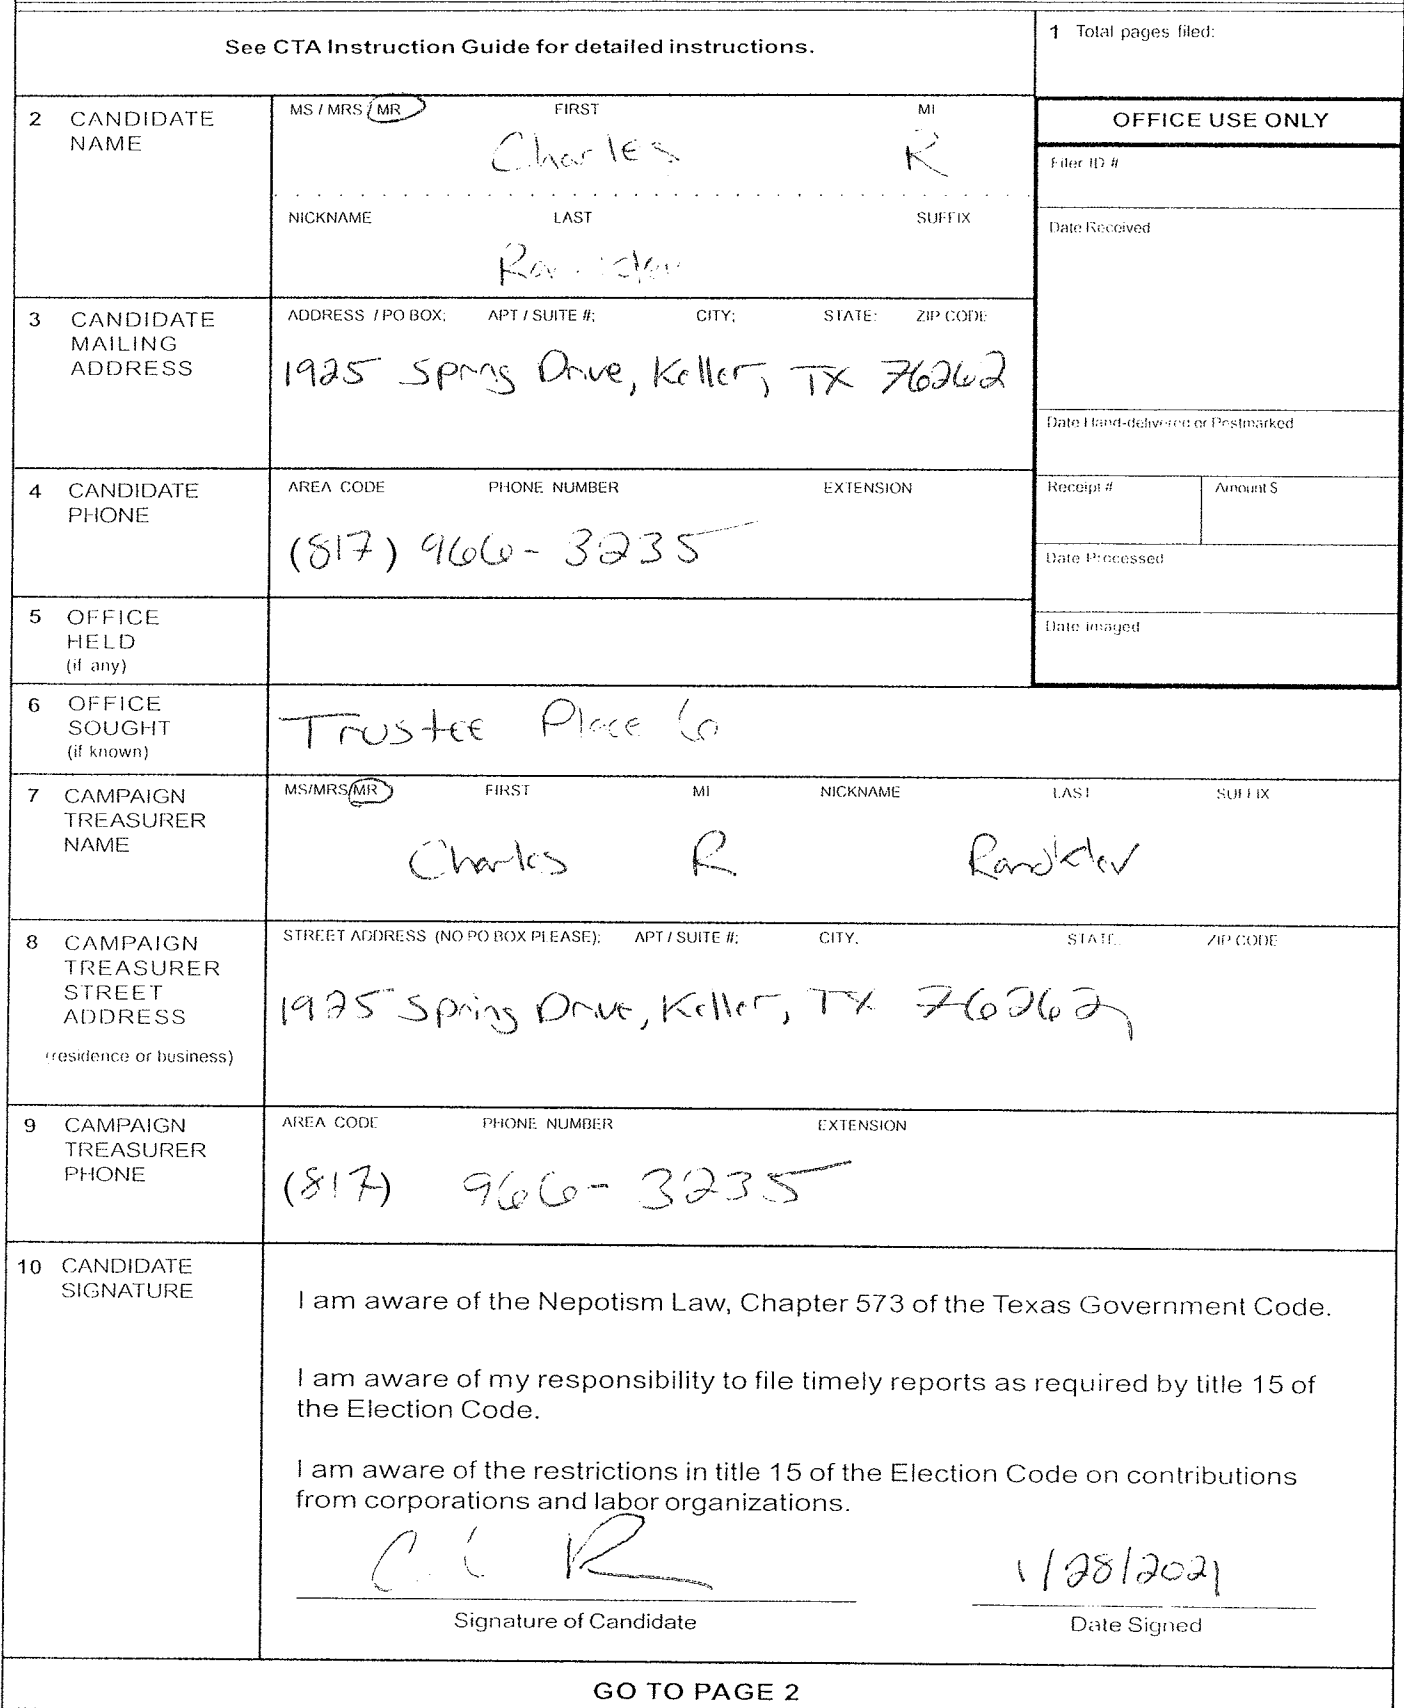 See CTA Instruction Guide for detailed instructions.
1 Total pages filed:
2 CANDIDATE NAME
MS / MRS / MR FIRST MI
Charles R
NICKNAME LAST SUFFIX
OFFICE USE ONLY
Filer ID #
Date Received
3 CANDIDATE MAILING ADDRESS
ADDRESS / PO BOX; APT / SUITE #; CITY; STATE; ZIP CODE
1925 Spring Drive, Keller, TX 76262
Date Hand-delivered or Postmarked
4 CANDIDATE PHONE
AREA CODE PHONE NUMBER EXTENSION
(817) 966-3235
Receipt # Amount $
Date Processed
Date Imaged
5 OFFICE HELD (if any)
6 OFFICE SOUGHT (if known)
Trustee Place 6
7 CAMPAIGN TREASURER NAME
MS/MRS/MR FIRST MI NICKNAME LAST SUFFIX
Charles R Randklev
8 CAMPAIGN TREASURER STREET ADDRESS
(residence or business)
STREET ADDRESS (NO PO BOX PLEASE); APT / SUITE #; CITY; STATE; ZIP CODE
1925 Spring Drive, Keller, TX 76262
9 CAMPAIGN TREASURER PHONE
AREA CODE PHONE NUMBER EXTENSION
(817) 966-3235
10 CANDIDATE SIGNATURE
I am aware of the Nepotism Law, Chapter 573 of the Texas Government Code.
I am aware of my responsibility to file timely reports as required by title 15 of
the Election Code.
I am aware of the restrictions in title 15 of the Election Code on contributions
from corporations and labor organizations.
1/28/2021
Signature of Candidate Date Signed
GO TO PAGE 2